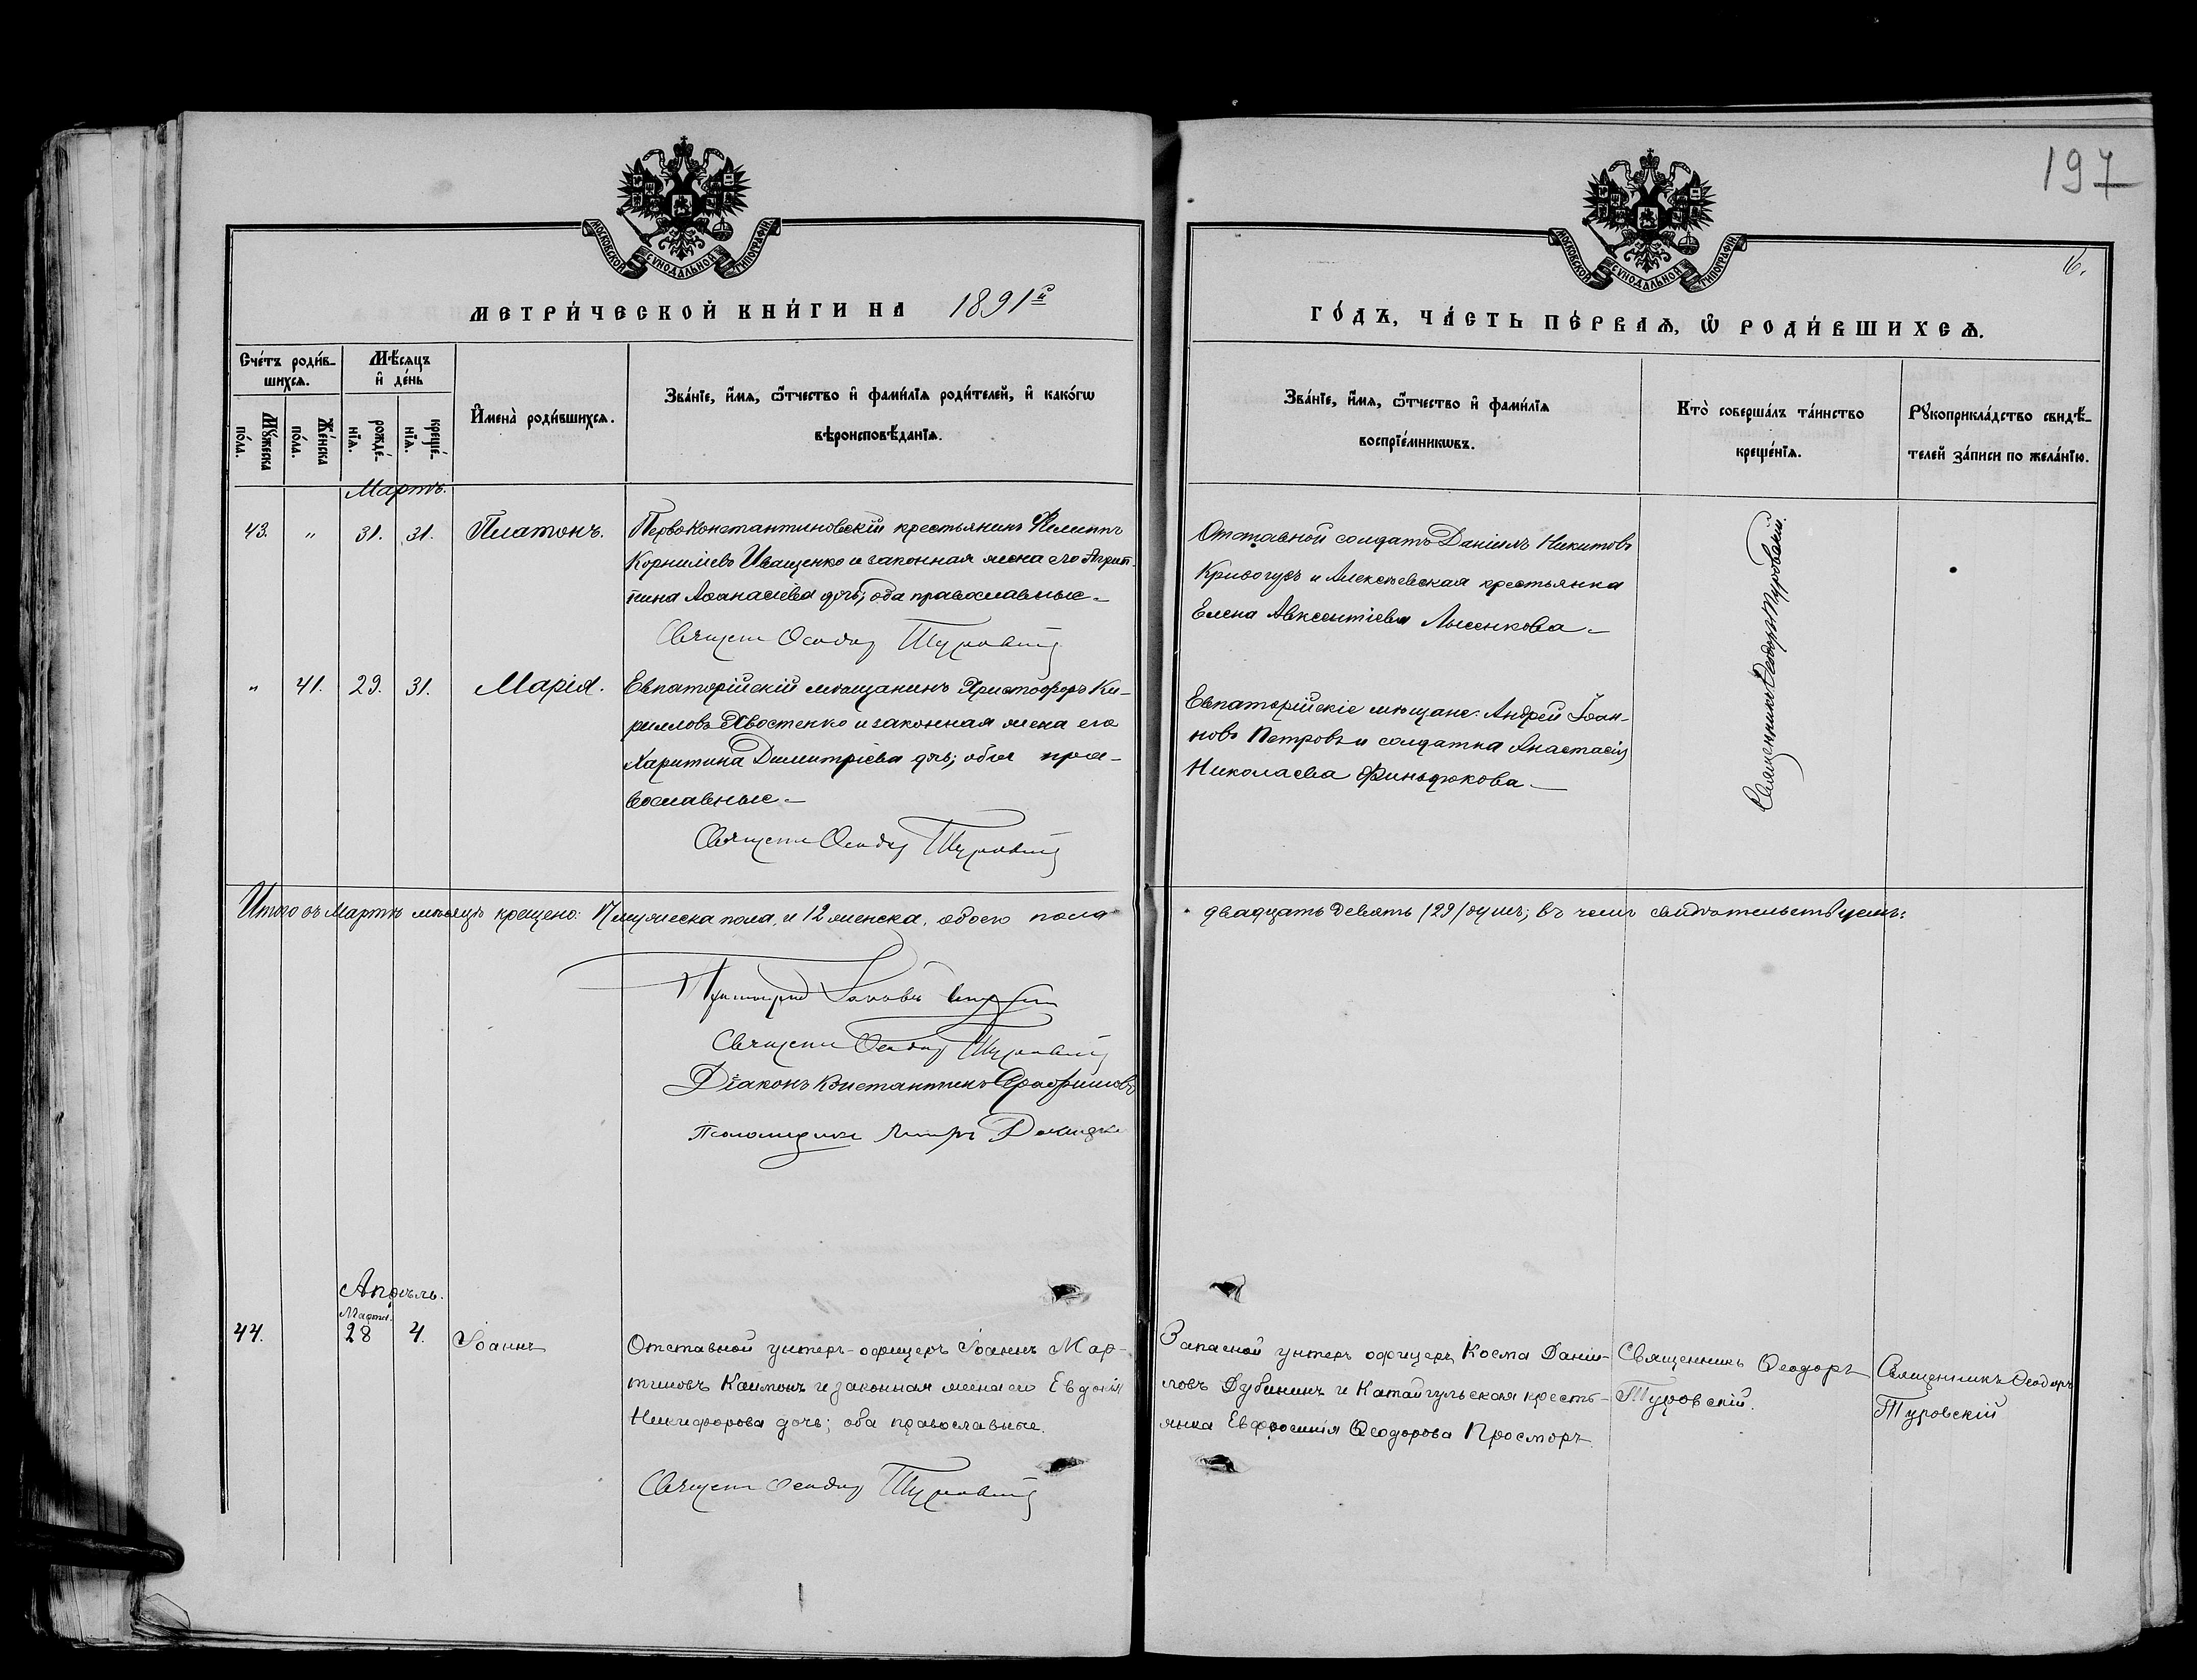 197
МОСКОВСКОЙ СѴНОДАЛЬНОЙ ТИПОГРАФІИ
МОСКОВСКОЙ СѴНОДАЛЬНОЙ ТИПОГРАФІИ
6.
МЕТРИ́ЧЕСКОЙ КНИ́ГИ НА 1891й
ГО́ДЪ, ЧА́СТЬ ПЕ́РВАѦ, Ѡ҆ РОДИ́ВШИХСѦ.
Сче́тъ роди́в-
шихсѧ.
Мꙋ́жеска
по́ла.
Же́нска
по́ла.
Мѣ́сяцъ
и҆ де́нь
рожде́-
нїѧ.
креще́-
нїѧ.
И҆мена̀ роди́вшихсѧ.
Зва́нїе, и҆́мѧ, ѻ҆́тчество и҆ фами́лїѧ роди́телей, и҆ како́гѡ
вѣроисповѣ́данїѧ.
Зва́нїе, и҆́мѧ, ѻ҆́тчество и҆ фами́лїѧ
воспрїе́мникѡвъ.
Кто̀ соверша́лъ та́инство
креще́нїѧ.
Рꙋкоприкла́дство свидѣ́-
телей за́писи по жела́нїю.
Мартъ.
43. " 31. 31. Платонъ.
Первоконстантиновскій крестьянинъ Филиппъ
Корниліевъ Иващенко и законная жена его Агрип-
пина Аѳанасіева дочь; оба православные.
Священ Ѳеодоръ Туровскій
Отставной солдатъ Даніилъ Никитовъ
Кривогузъ и Алексѣевская крестьянка
Елена Авксентіева Лысенкова
Священникъ Ѳеодоръ Туровскій.
" 41. 29. 31. Марія.
Евпаторійскій мѣщанинъ Христофоръ Ки-
рилловъ Хвостенко и законная жена его
Харитина Димитріева дочь; оба пра-
вославные.
Священ Ѳеодоръ Туровскій
Евпаторійскіе мѣщане: Андрей Іоан-
новъ Петровъ и солдатка Анастасія
Николаева Финьдюкова
Итого въ Мартѣ мѣсяцѣ крещено: 17 мужеска пола, и 12 женска, обоего пола
двадцать девять (29) душъ; въ чемъ свидѣтельствуемъ:
Протоіерей Іаковъ
Священ Ѳеодоръ Туровскій
Діаконъ Константинъ
Псаломщикъ
Апрѣль.
Марта.
44. 28 4. Іоаннъ
Отставной унтеръ-офицеръ Іоаннъ Мар-
тиновъ Каимонъ и законная жена его Евдокія
Никифорова дочь; оба православные.
Священ Ѳеодоръ Туровскій
Запасной унтеръ офицеръ Косма Даніи-
ловъ Дубининъ и Катайгульская кресть-
янка Евфросинія Ѳеодорова Просморъ
Священникъ Ѳеодоръ
Туровскій.
Священникъ Ѳеодоръ
Туровскій